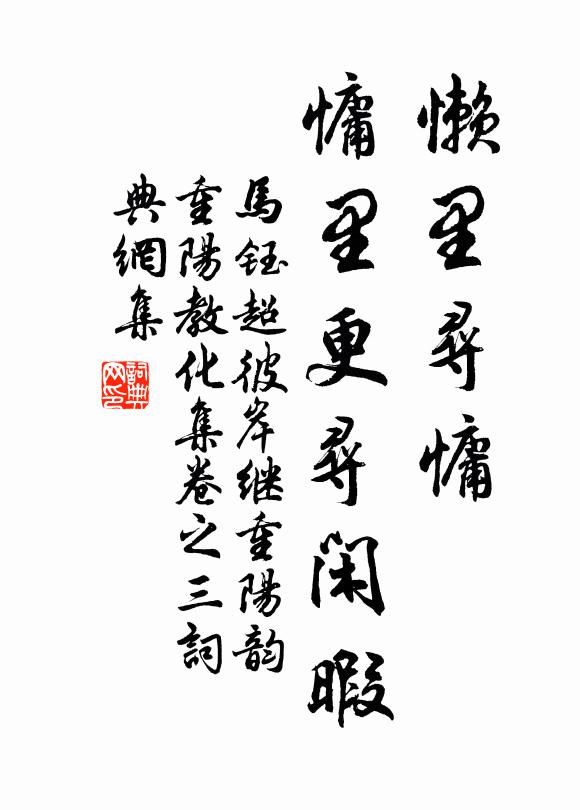 懒里尋慵
慵里更尋閑暇
馬鈺超彼岸继重陽韵
重陽教化集卷之三詞
典網集
詞典网印